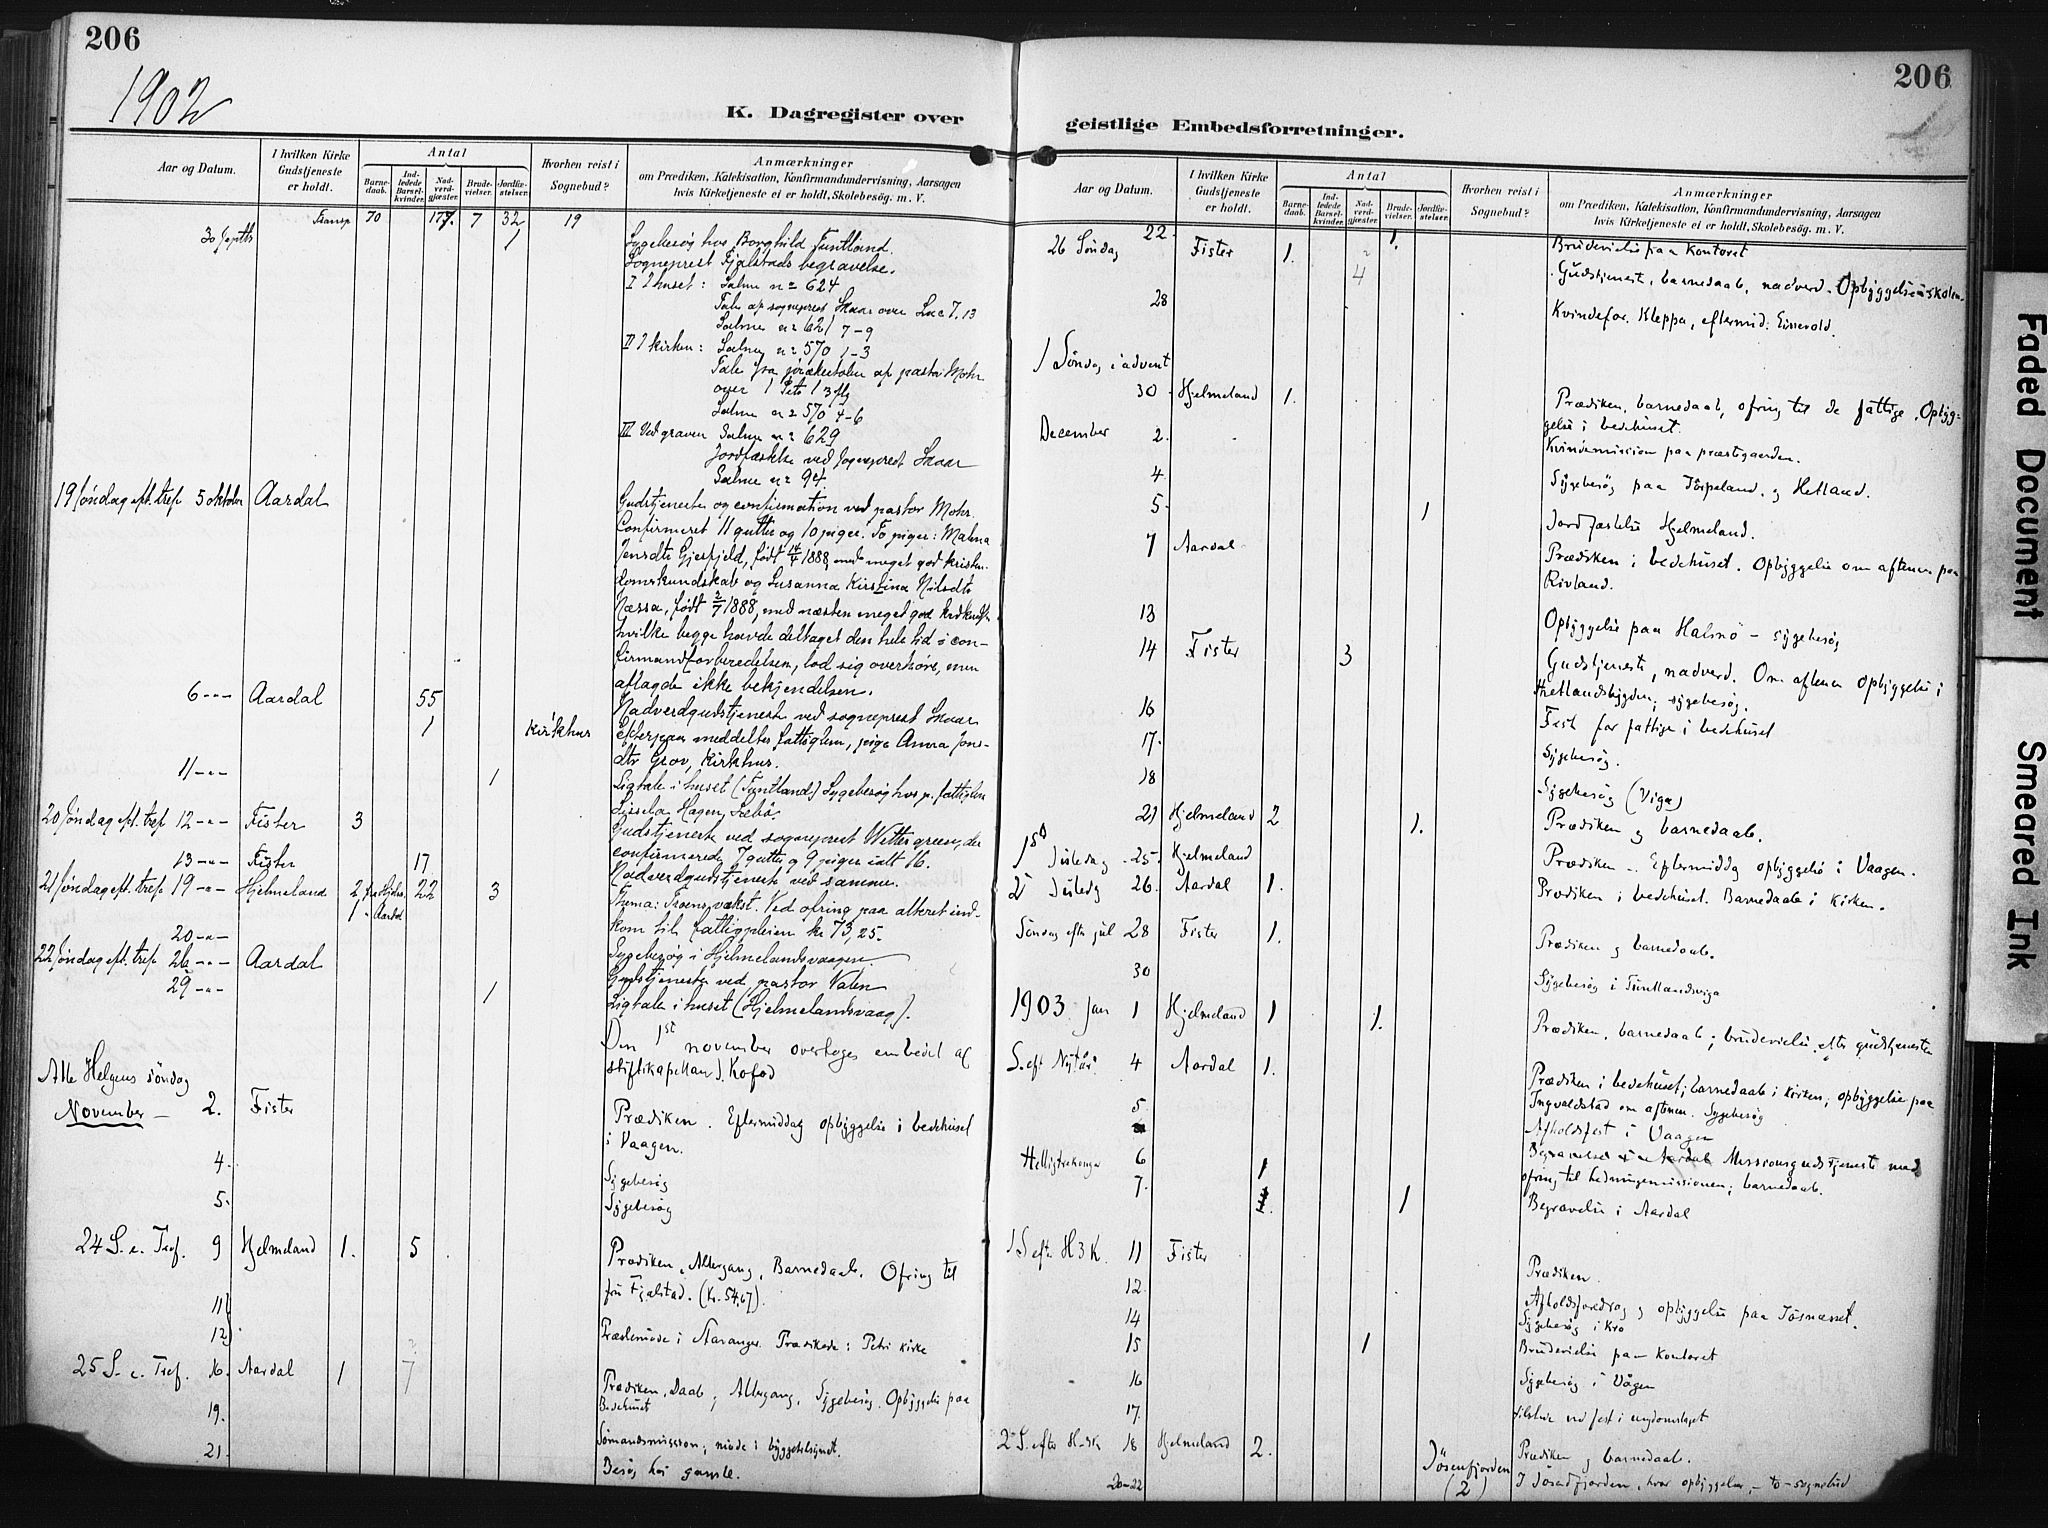 206
1902
K. Dagregister over
Aar og Datum.
I hvilken Kirke Gudstjeneste er holdt.
Antal
Barnedaab.
Indledede Barselkvinder.
Nadverdgjester.
Brudevielser.
Jordfæstelser.
Hvorhen reist i Sognebud?
Anmærkninger
om Prædiken, Katekisation, Konfirmandundervisning, Aarsagen
hvis Kirketjeneste ei er holdt, Skolebesøg. m. V.
Transp 70 177. 7 32 19
30 septbr 1 Sygebesøg hos Borghild Tuntland.
Sogneprest Fjalstads begravelse.
I I huset: Salme nr 624
Tale af sogneprest Skaar over Luc 7, 13
Salme nr 621 7-9
II I kirken: Salme nr 570 1-3
Tale fra prækestolen af pastor Mohr
over 1 Petr 1 3 flg
Salme nr 570 4-6
III Ved graven Salme nr 629
Jordfæstelse ved sogneprest Skaar
Salme nr 94
19 søndag eft. tref 5 oktober Aardal Gudstjeneste og confirmation ved pastor Mohr.
Confirmeret 11 gutter og 10 piger. To piger: Malena
Jensdtr Gjerfjeld, født 1888, med meget god kristen-
domskundskab og Susanna Kirstina Nilsdtr
Næssa, født 2/7 1888, med næsten meget god
hvilke begge havde deltaget den hele tid i con-
firmandforberedelsen, lod sig overhøre, men
aflagde ikke bekjendelsen.
6 -"- Aardal 55 Nadverdgudstjeneste ved sogneprest Skaar
1 Kirkhus Efterpaa meddeltes fattiglem, pige Anna Jons-
dtr Grov, Kirkhus.
11 -"- 1 Ligtale i huset (Tuntland) Sygebesøg hos p. fattiglem
Sissela Hagen, Sæbø.
20 søndag eft. tref 12 -"- Fister 3 Gudstjeneste ved sogneprest Wettergreen, der
confirmerede 7 gutter og 9 piger ialt 16.
13 -"- Fister 17 Nadverdgudstjeneste ved samme.
21 søndag eft. tref 19 -"- Hjelmeland 2 fra Hjelm. 22 3 Thema: Troens vækst. Ved ofring paa alteret ind-
1 - Aardal kom til fattigpleien kr 73,25.
20 -"- Sygebesøg i Hjelmelandsvaagen.
22 søndag eft. tref 26 -"- Aardal Gudstjeneste ved pastor Valen
29 -"- 1 Ligtale i huset (Hjelmelandsvaag).
Den 1st november overtoges embedet af
stiftskapellan J. Kofod
Alle Helgens søndag
November - 2. Fister Prædiken. Eftermiddag opbyggelse i bedehuset
i Vaagen.
4. Sygebesøg
5. Sygebesøg
24 S. e. Tref. 9 Hjelmeland 1. 5 Prædiken, Altergang, Barnedaab. Ofring til
fru Fjalstad. (Kr. 54,67).
11
12 Præstemøde i Stavanger. Prædikede: Petri kirke
25 S. e. Tref. 16. Aardal 1 7 Prædiken, Daab, Altergang, Sygebesøg. Opbyggelse paa
Bedehuset
19. Sømandsmission; møde i
21. Besøg hos gamle.
206
geistlige Embedsforretninger.
Aar og Datum.
I hvilken Kirke Gudstjeneste er holdt.
Antal
Barnedaab.
Indledede Barselkvinder.
Nadverdgjester.
Brudevielser.
Jordfæstelser.
Hvorhen reist i Sognebud?
Anmærkninger
om Prædiken, Katekisation, Konfirmandundervisning, Aarsagen
hvis Kirketjeneste ei er holdt, Skolebesøg. m. V.
22. 1. Brudevielse paa Kontoret
26 Søndag Fister 1. 4 Gudstjeneste, barnedaab, nadverd. Opbyggelse i skolen.
28 Kvindefor. Kleppa, eftermid:
1 Søndag i advent
30 Hjelmeland 1. Prædiken, barnedaab, ofring til de fattige. Opbyg-
gelse i bedehuset.
December 2. Kvindemission paa præstegaarden.
4. Sygebesøg paa Tøspeland og Hetland.
5. 1 Jordfæstelse Hjelmeland.
7 Aardal Prædiken i bedehuset. Opbyggelse om aftenen paa
Rivland.
13 Opbyggelse paa Halsnø - sygebesøg
14 Fister 3 Gudstjeneste, nadverd. Om aftenen opbyggelse i
Hetlandsbygden, sygebesøg.
16 Fest for fattige i bedehuset
17. Sygebesøg.
18 Sygebesøg (Viga)
21 Hjelmeland 2 1. Prædiken og barnedaab.
1st Juledag 25. Hjelmeland Prædiken - Eftermiddag opbyggelse i Vaagen.
2 Juledag 26. Aardal 1. Prædiken i bedehuset. Barnedaab i kirken.
Søndag efter jul 28 Fister 1. Prædiken og barnedaab.
30 Sygebesøg i Tuntlandsviga
1903 Jan 1 Hjelmeland 1 1. Prædiken, barnedaab; brudevielse efter gudstjenesten
S. eft Nytår 4 Aardal 1. Prædiken i bedehuset; barnedaab i kirken; opbyggelse paa
Ingvaldstad om aftenen. Sygebesøg
5 Afholdsfest i Vaagen
Helligtrekonger 6 1 Missionsgudstjeneste med
ofring til hedningemissionen; barnedaab.
7. 1 Begravelse i Aardal
1 S efter H3K. 11 Fister Prædiken.
12. Afholdsforedrag og opbyggelse paa Tøsnæsset.
14 Sygebesøg i Kro
15 1 Brudevielse paa Kontoret
16 Sygebesøg i Vågen
17. tilstede ved fest i ungdomslaget
2 S. efter H.3K 18 Hjelmeland 2. Prædiken og barnedaab.
20-22 Jøsenfjorden (2) I Jøsenfjorden, hvor opbyggelser, - to - sognebud
Faded Document
Smeared Ink